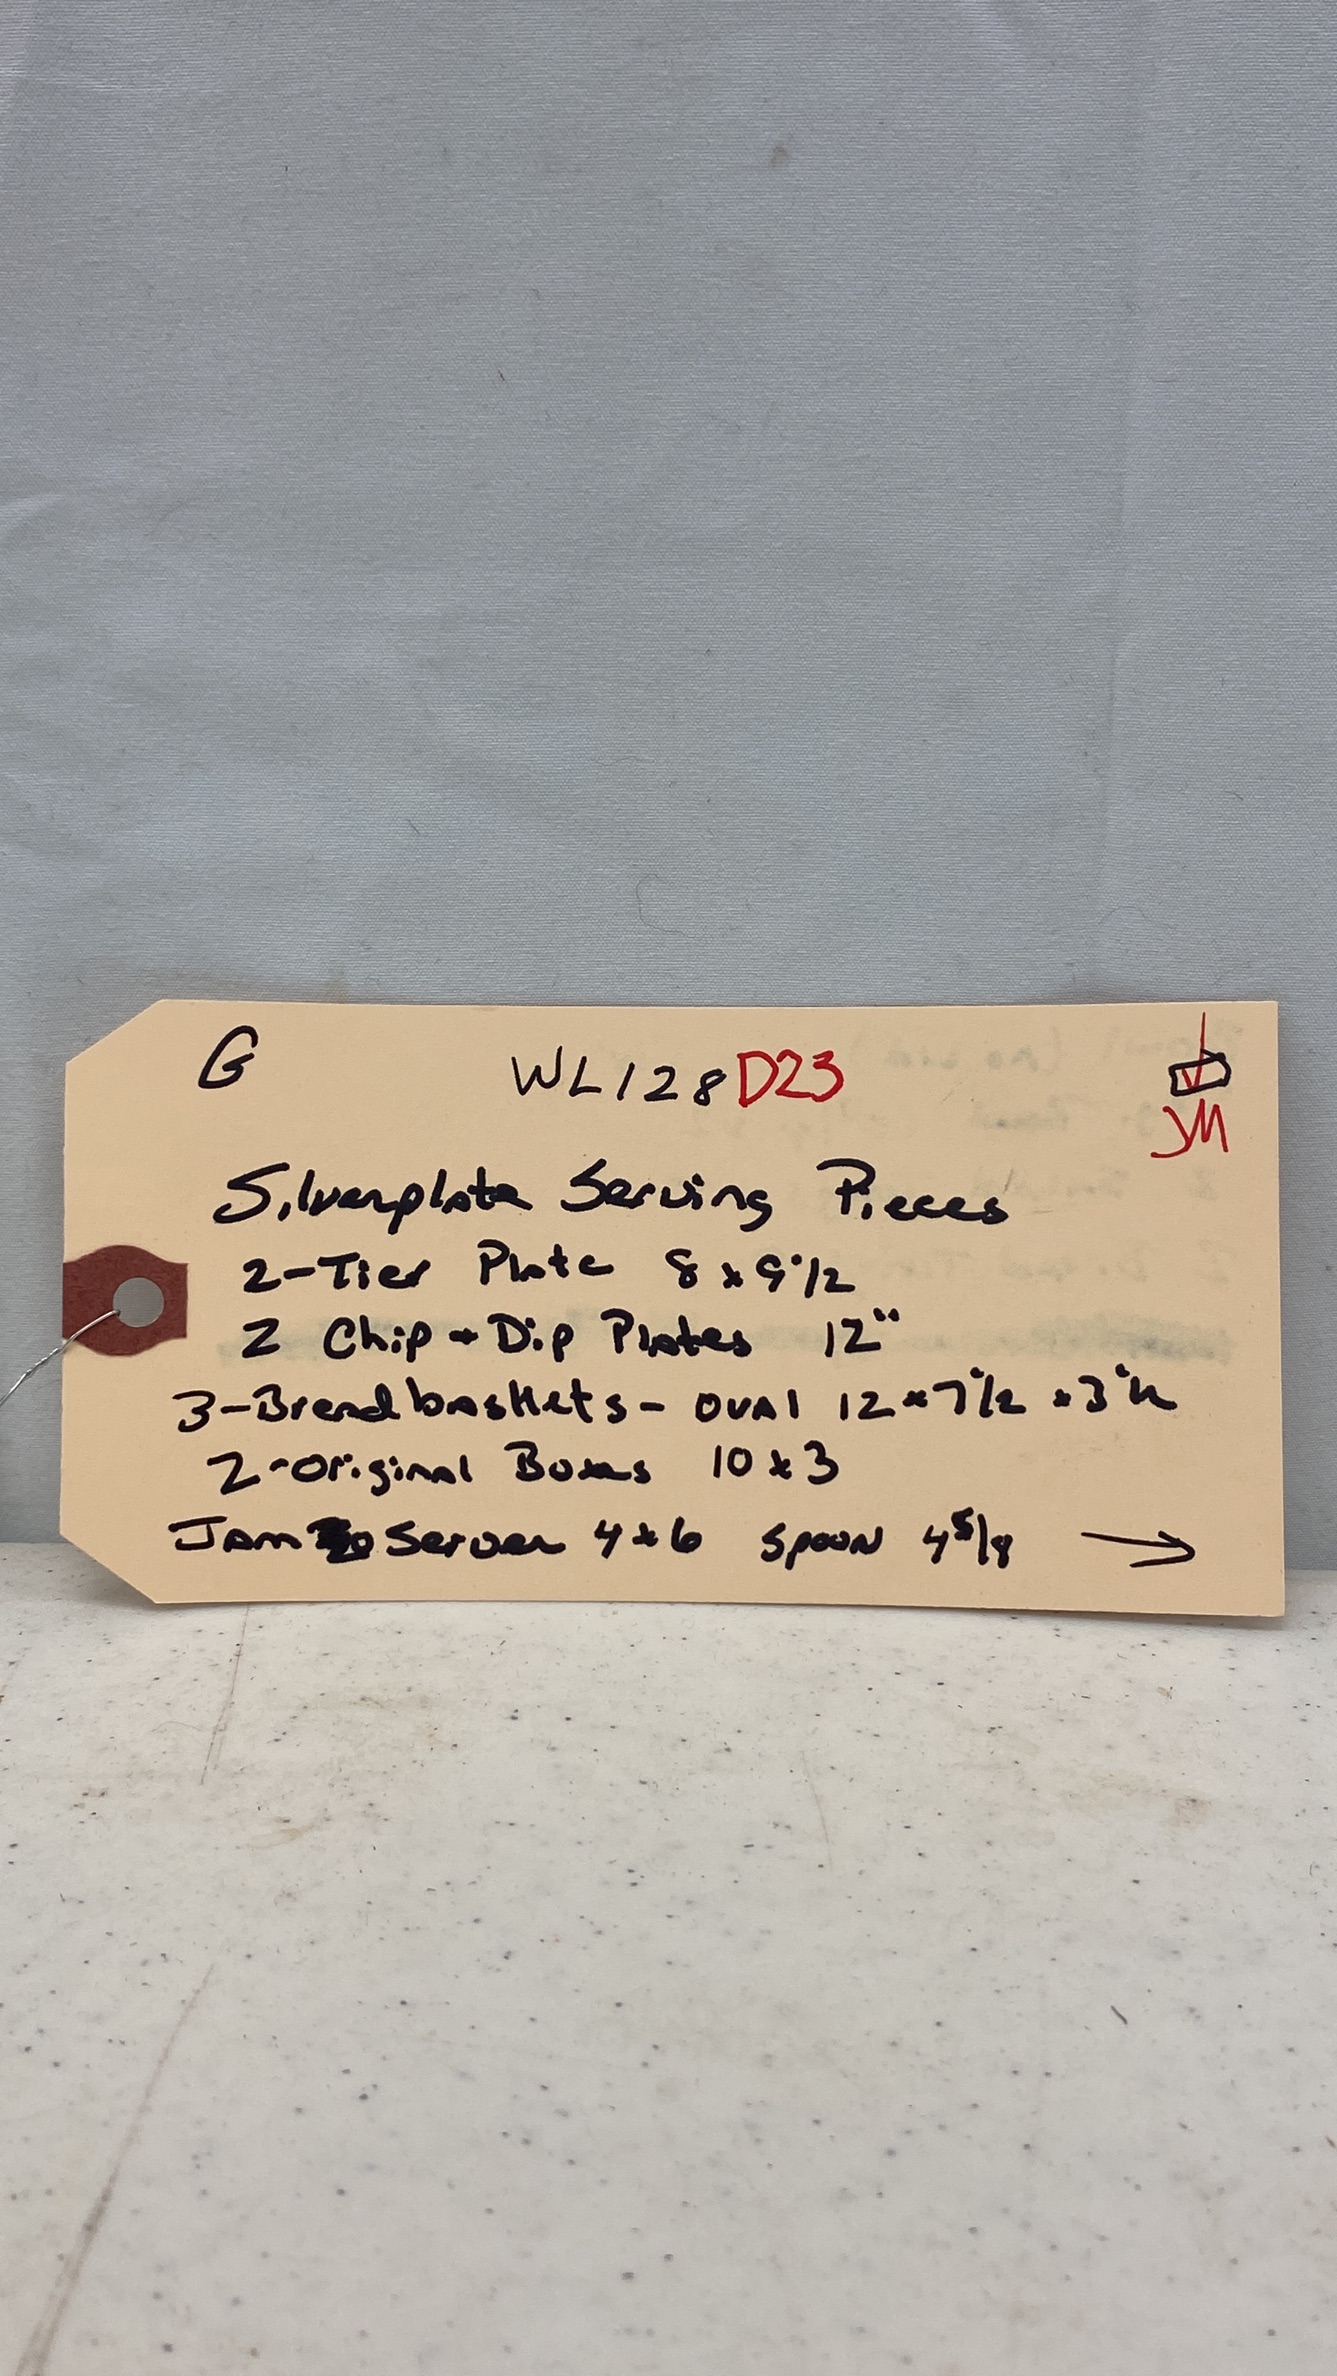 G WL128D23
JM
Silverplate Serving Pieces
2-Tier Plate 8 x 9 1/2
2 Chip + Dip Plates 12"
3-Breadbaskets - OVAL 12 x 7 1/2 x 3 1/2
2-Original Boxes 10 x 3
Jam Server 4 x 6 Spoon 4 5/8 →